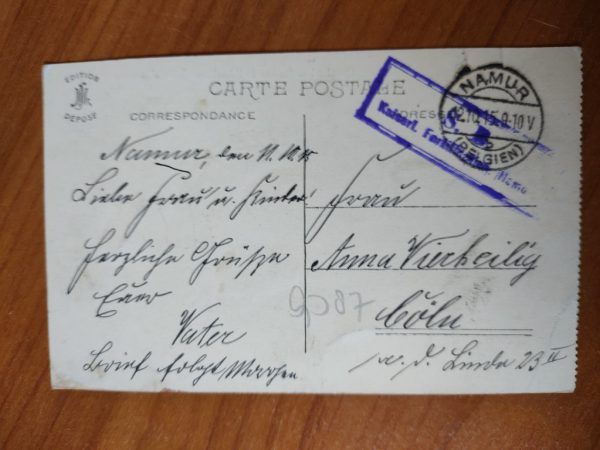 EDITION
DÉPOSÉ
CARTE POSTALE
CORRESPONDANCE
ADRESSE
NAMUR
12.10.15.9-10V
(BELGIEN)
S. B.
Kaiserl.
Namur, den 11.10.15
Liebe Frau u. Kinder!
Herzliche Grüße
Euer
Vater
Brief folgt Morgen
Frau
Anna Vierheilig
Cöln
a. d. Linde 23 II